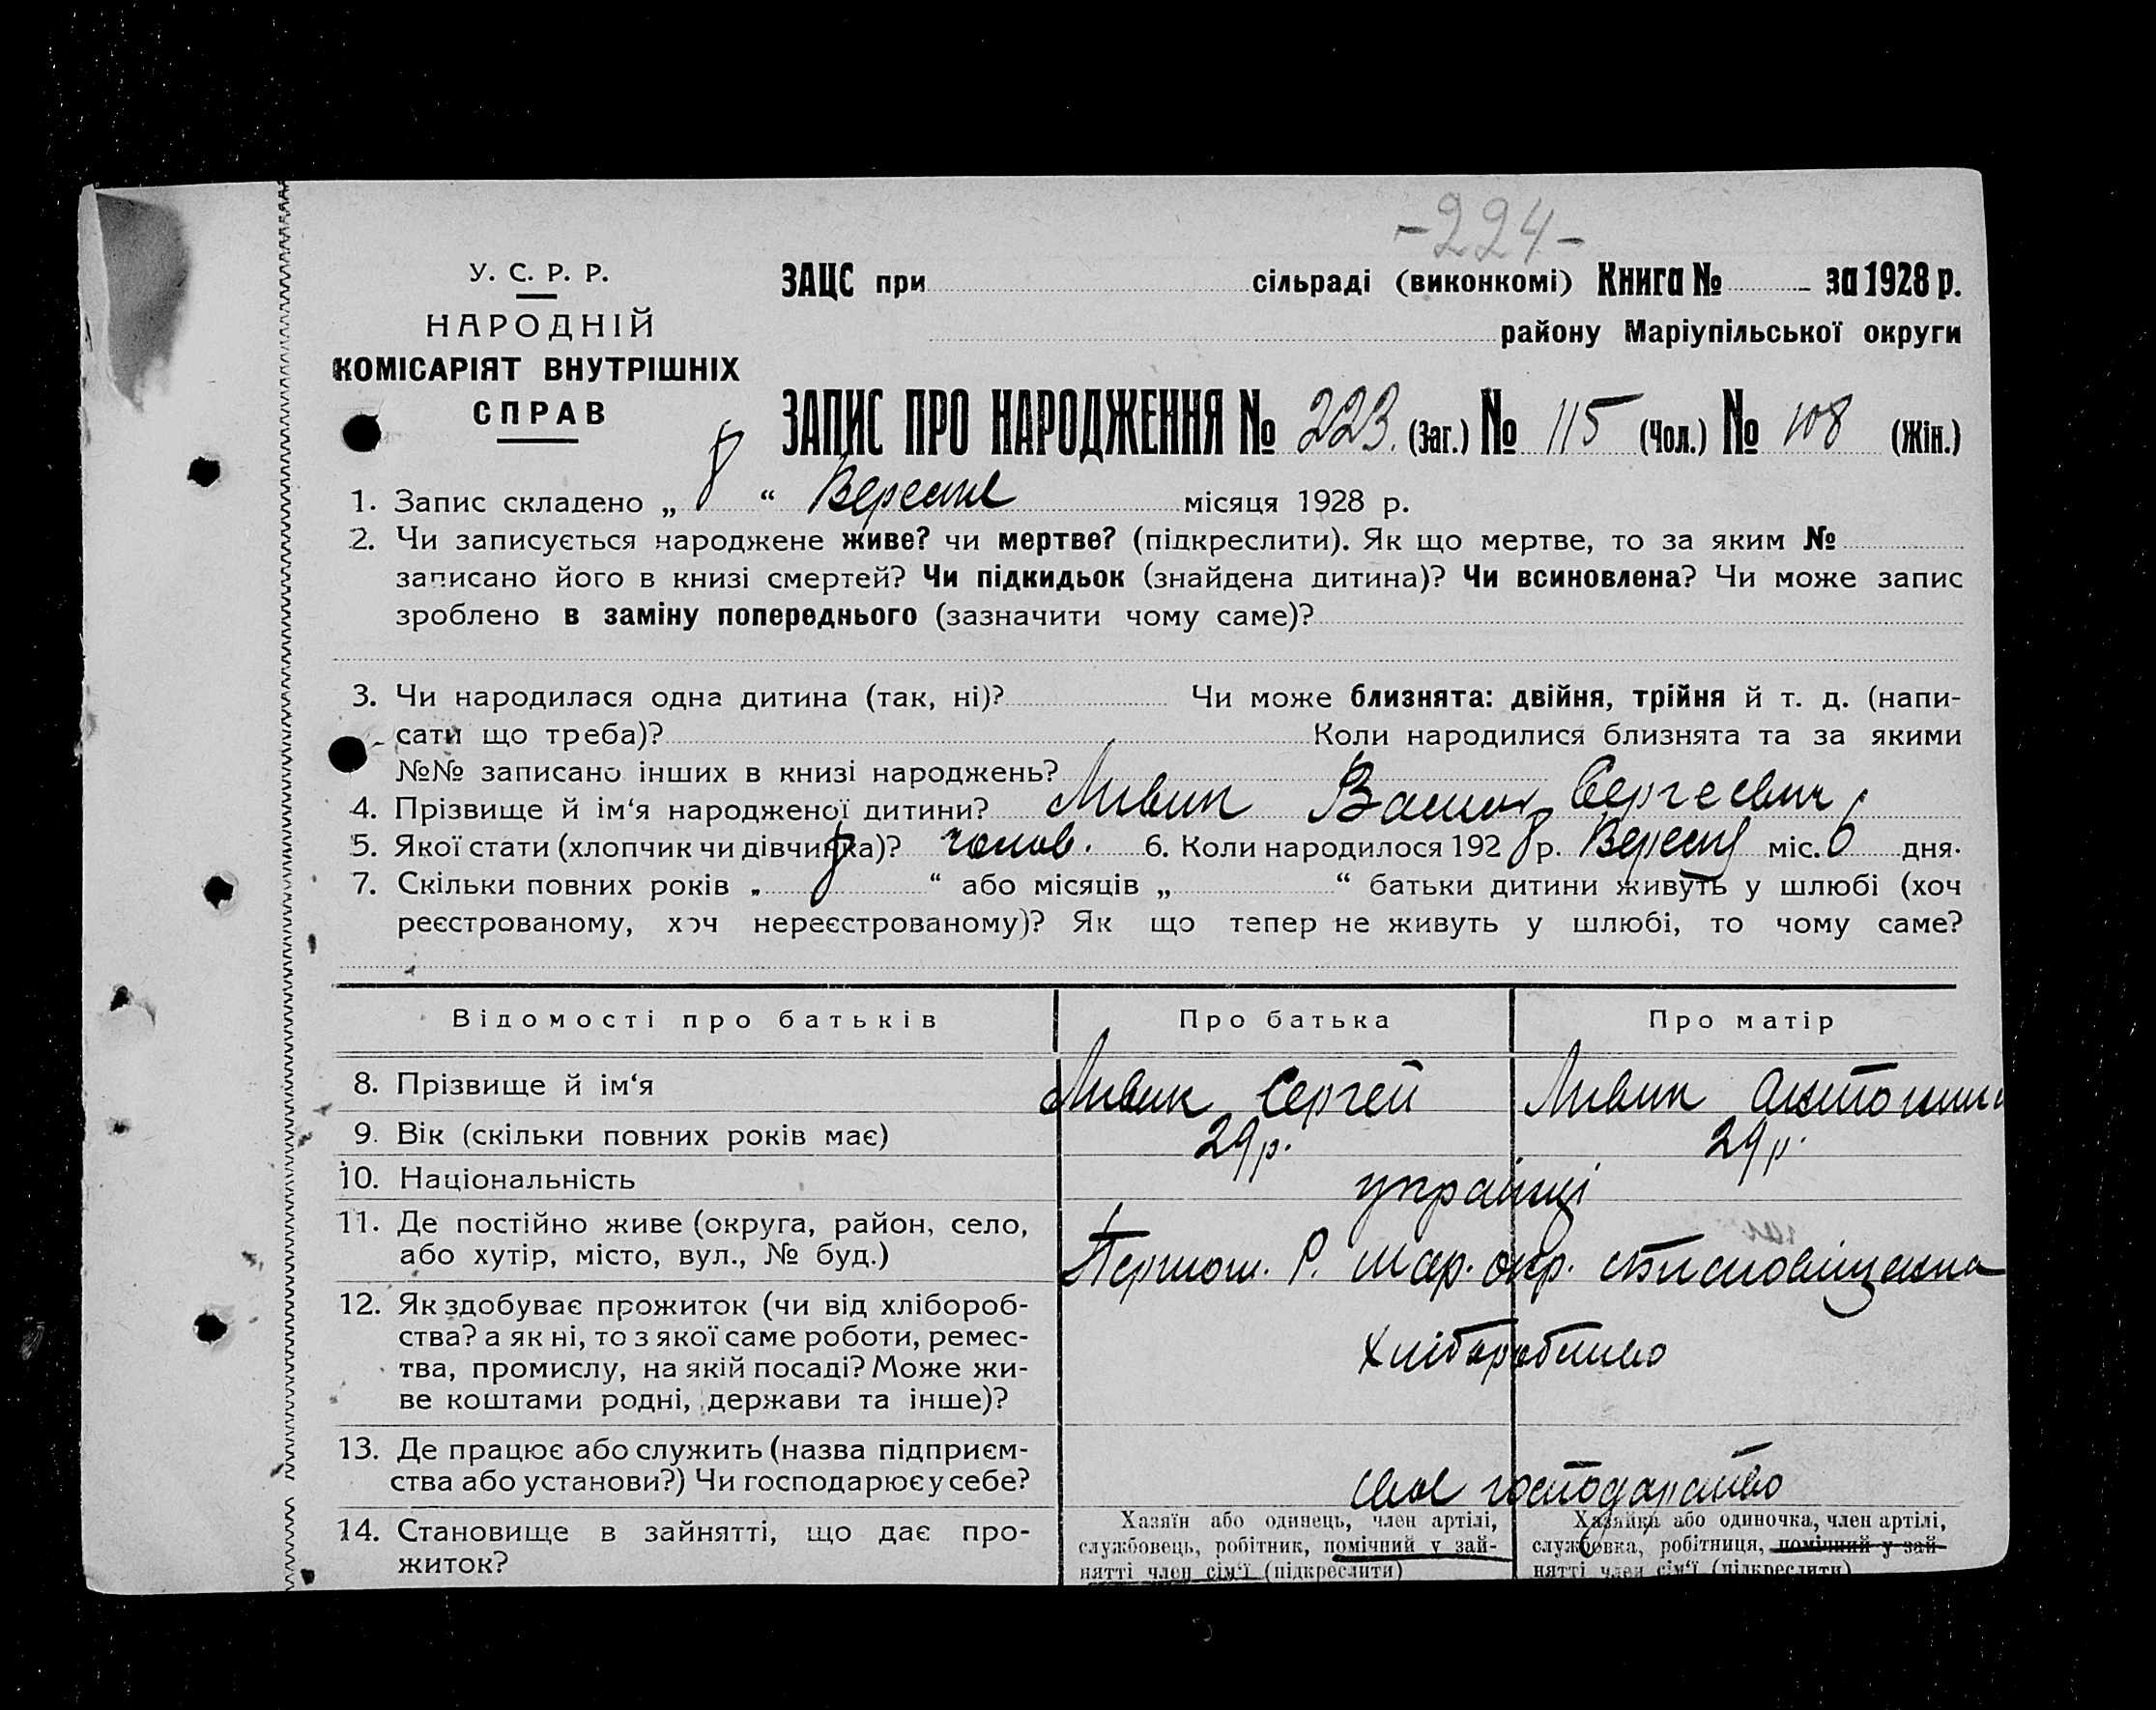 -224-
У. С. Р. Р.
НАРОДНІЙ
КОМІСАРІЯТ ВНУТРІШНІХ
СПРАВ
ЗАЦС при сільраді (виконкомі) Книга № за 1928 р.
району Маріупільської округи
ЗАПИС ПРО НАРОДЖЕННЯ № 223 (Заг.) № 115 (Чол.) № 108 (Жін.)
1. Запис складено „ 8 “ Вересня місяця 1928 р.
2. Чи записується народжене живе? чи мертве? (підкреслити). Як що мертве, то за яким №
записано його в книзі смертей? Чи підкидьок (знайдена дитина)? Чи всиновлена? Чи може запис
зроблено в заміну попереднього (зазначити чому саме)?
3. Чи народилася одна дитина (так, ні)? Чи може близнята: двійня, трійня й т. д. (напи-
сати що треба)? Коли народилися близнята та за якими
№№ записано інших в книзі народжень?
4. Прізвище й ім‘я народженої дитини? Сергеевич
5. Якої стати (хлопчик чи дівчинка)? чолов. 6. Коли народилося 1928 р. Вересня міс. 6 дня.
7. Скільки повних років „ 8 “ або місяців „ “ батьки дитини живуть у шлюбі (хоч
реєстрованому, хоч нереєстрованому)? Як що тепер не живуть у шлюбі, то чому саме?
Відомості про батьків Про батька Про матір
8. Прізвище й ім‘я Сергей
9. Вік (скільки повних років має) 29 р. 29 р.
10. Національність українці
11. Де постійно живе (округа, район, село,
або хутір, місто, вул., № буд.) Р. Мар. окр.
12. Як здобуває прожиток (чи від хлібороб-
ства? а як ні, то з якої саме роботи, ремес-
тва, промислу, на якій посаді? Може жи-
ве коштами родні, держави та інше)? Хліборобство
13. Де працює або служить (назва підприєм-
ства або установи?) Чи господарює у себе? своє господарство
14. Становище в зайнятті, що дає про-
житок?
Хазяїн або одинець, член артілі,
службовець, робітник, помічний у зай-
нятті член сім‘ї (підкреслити)
Хазяйка або одиночка, член артілі,
службовка, робітниця, помічний у зай-
нятті член сім‘ї (підкреслити)